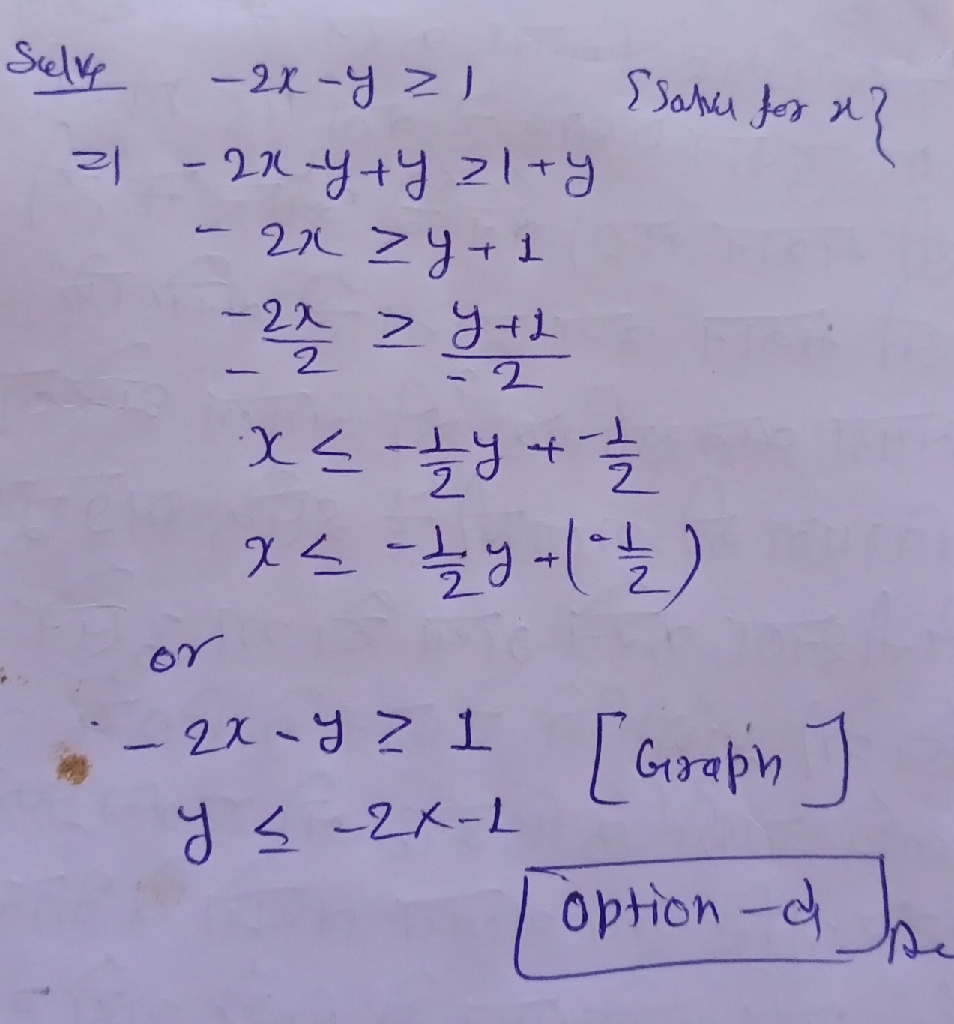 Solve -2x-y ≥ 1 {Solve for x}
⇒ -2x-y+y ≥ 1+y
-2x ≥ y+1
-2x/-2 ≥ y+1/-2
x ≤ -1/2 y + -1/2
x ≤ -1/2 y + (-1/2)
or
-2x-y ≥ 1 [Graph]
y ≤ -2x-1
option-d